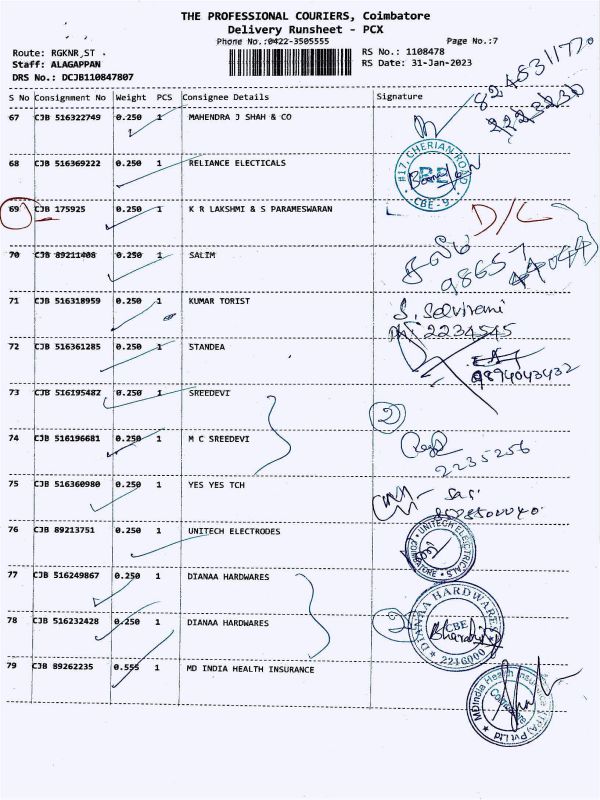 THE PROFESSIONAL COURIERS, Coimbatore
Delivery Runsheet - PCX
Phone No.:0422-3505555
Page No.:7
Route: RGKNR,ST .
RS No.: 1108478
Staff: ALAGAPPAN
RS Date: 31-Jan-2023
DRS No.: DCJB110847807
S No Consignment No Weight PCS Consignee Details Signature
67 CJB 516322749 0.250 1 MAHENDRA J SHAH & CO
68 CJB 516369222 0.250 1 RELIANCE ELECTICALS
#17, CHERIAN ROAD
CBE - 9
69 CJB 175925 0.250 1 K R LAKSHMI & S PARAMESWARAN
D/L
70 CJB 89211408 0.250 1 SALIM
71 CJB 516318959 0.250 1 KUMAR TORIST
S. Selvirani
Ph: 2234545
72 CJB 516361285 0.250 1 STANDEA
9894043432
73 CJB 516195482 0.250 1 SREEDEVI
2
74 CJB 516196681 0.250 1 M C SREEDEVI
2235256
75 CJB 516360980 0.250 1 YES YES TCH
76 CJB 89213751 0.250 1 UNITECH ELECTRODES
77 CJB 516249867 0.250 1 DIANAA HARDWARES
78 CJB 516232428 0.250 1 DIANAA HARDWARES
2
DIANAA HARDWARES
CBE
2216000
79 CJB 89262235 0.555 1 MD INDIA HEALTH INSURANCE